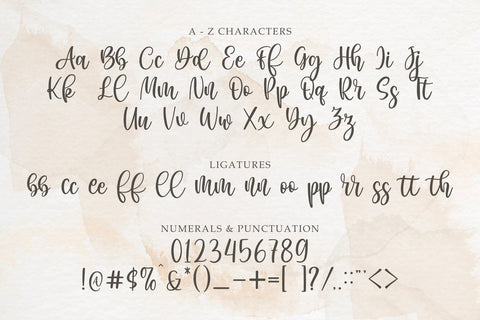 A - Z CHARACTERS
Aa Bb Cc Dd Ee Ff Gg Hh Ii Jj
Kk Ll Mm Nn Oo Pp Qq Rr Ss Tt
Uu Vv Ww Xx Yy Zz
LIGATURES
bb cc ee ff ll mm nn oo pp rr ss tt th
NUMERALS & PUNCTUATION
0123456789
!@#$%^&*()_-+=[ ]?/..::"'<>